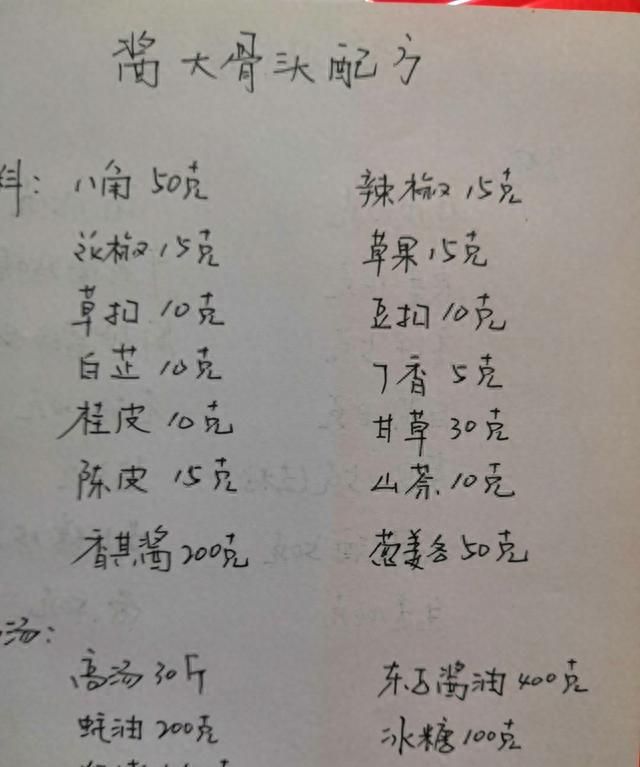 酱大骨头配方
料: 八角 50克 辣椒 15克
花椒 15克 草果 15克
草扣 10克 豆扣 10克
白芷 10克 丁香 5克
桂皮 10克 甘草 30克
陈皮 15克 山萘 10克
香其酱 200克 葱姜各 50克
汤:
高汤 30斤 东古酱油 400克
蚝油 200克 冰糖 100克